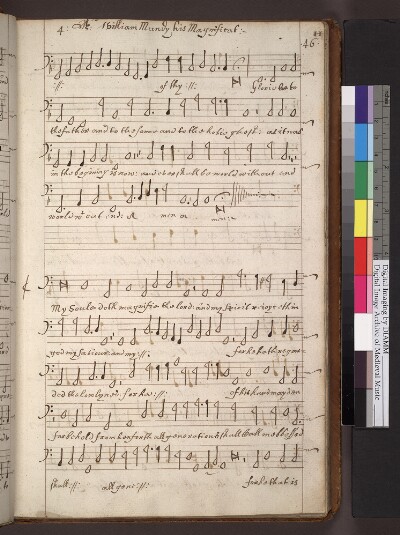 4. Mr. William Mundy his Magnificat:-
46
:||: of thy :||: Glorie be to
the father and to the sonne and to the holie ghost: as it was
in the begining is now: and ever shall be world without end
world wt out end: A men A men:
My Soule doth magnifie the lord: and my spirit rejoyceth in
god my saviour: and my :||: for he hath regar
ded the lowlynes: for he :||: of his handmayden
for behold from henforth all generations shall call me blessed
shall :||: all gene :||: for he that is
Digital Imaging by DIAMM
Digital Image Archive of Medieval Music